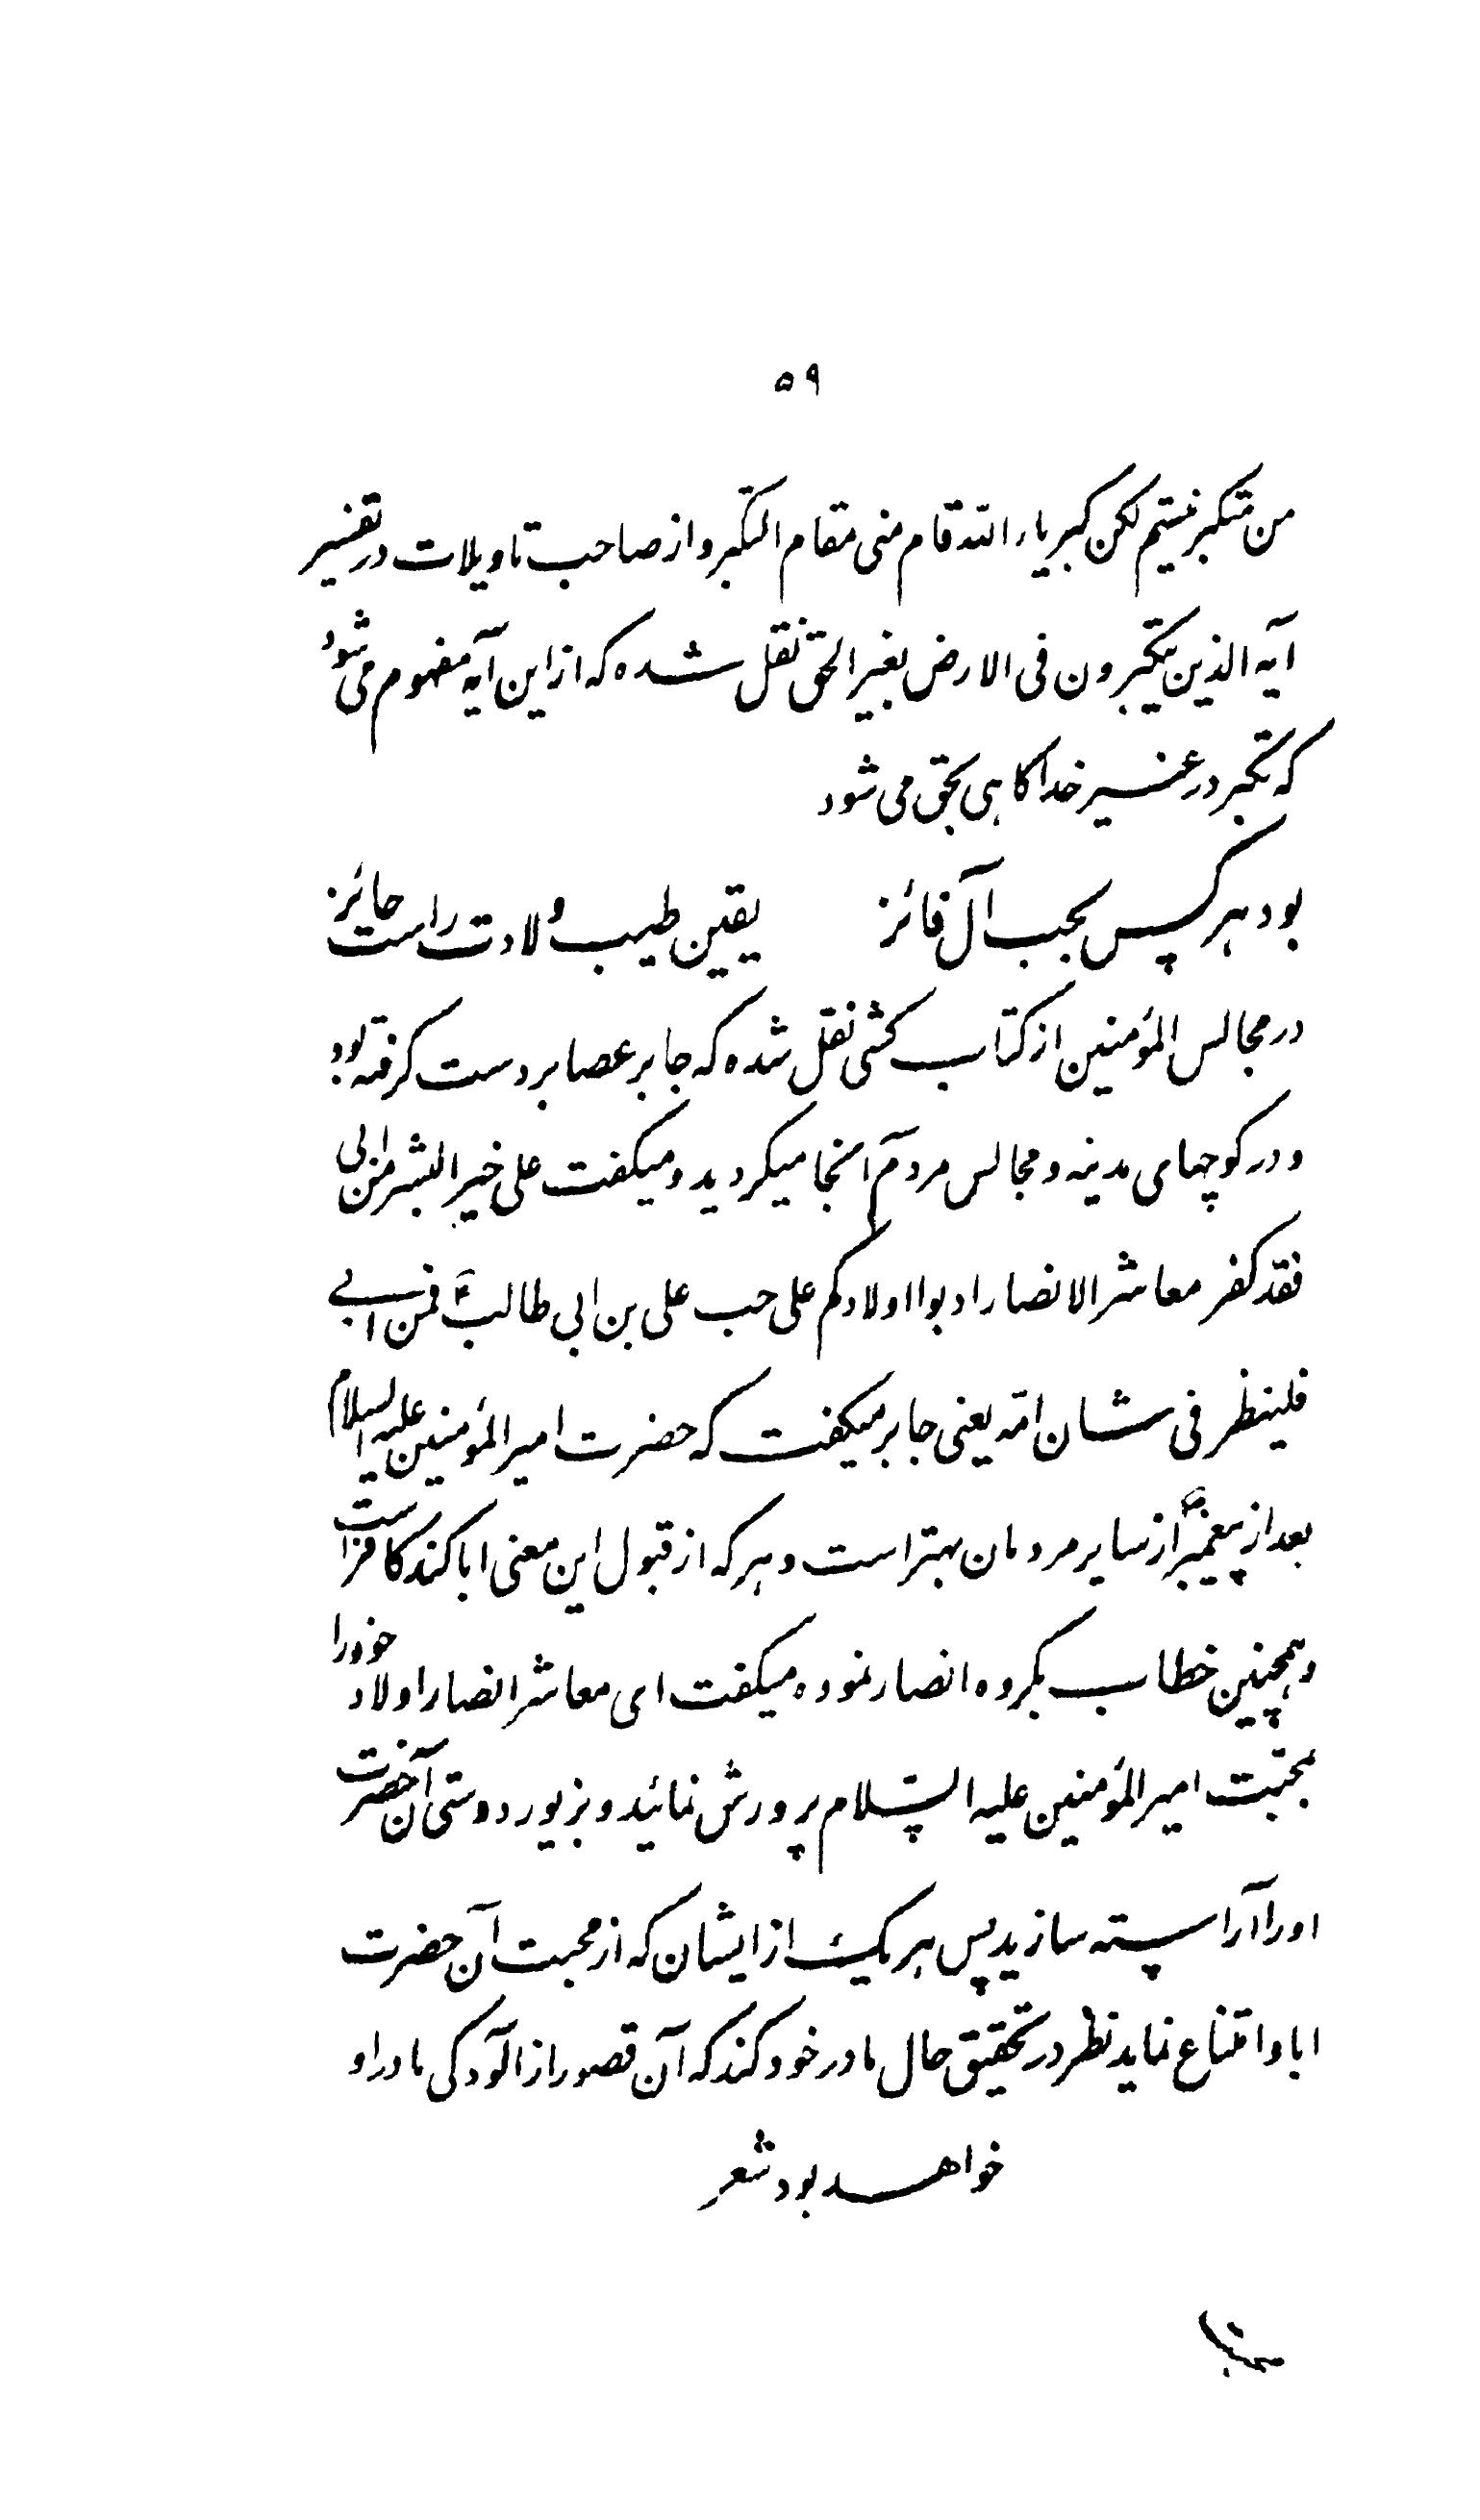 ۵۹
من متکبر نیستم لکن کبریاء الله قام منی مقام التکبر و از صاحب تاویلات در تفسیر
آیه الذین یتکبرون فی الارض بغیر الحق نقل شده که از این آیه مفهوم می شود
که تکبر در غیر خدا گاهی بحق می شود
بود هر کس بحب آل فائز یقین طیب ولادت راست حائز
در مجالس المؤمنین از کتاب کشی نقل شده که جابر عصا بر دست گرفته بود
و در کوچهای مدینه و مجالس مردم آنجا میگردید و میگفت علی خیر البشر فمن ابی
فقد کفر معاشر الانصار ادبوا اولادکم علی حب علی بن ابی طالب ع فمن ابی
فلینظر فی شان امه یعنی جابر میگفت که حضرت امیر المؤمنین علیه السلام
بعد از پیغمبر ص از سایر مردمان بهتر است و هر که از قبول این معنی ابا کند کافر است
و همچنین خطاب بگروه انصار نموده میگفت ای معاشر انصار اولاد خود را
بمحبت امیر المؤمنین علیه السلام پرورش نمائید و بزیور دوستی آن حضرت
او را آراسته سازید پس هر یک از ایشان که از محبت آن حضرت
ابا و امتناع نماید نظر در تحقیق حال مادر خود کند که آن قصور از آلودگی مادر او
خواهد بود شعر